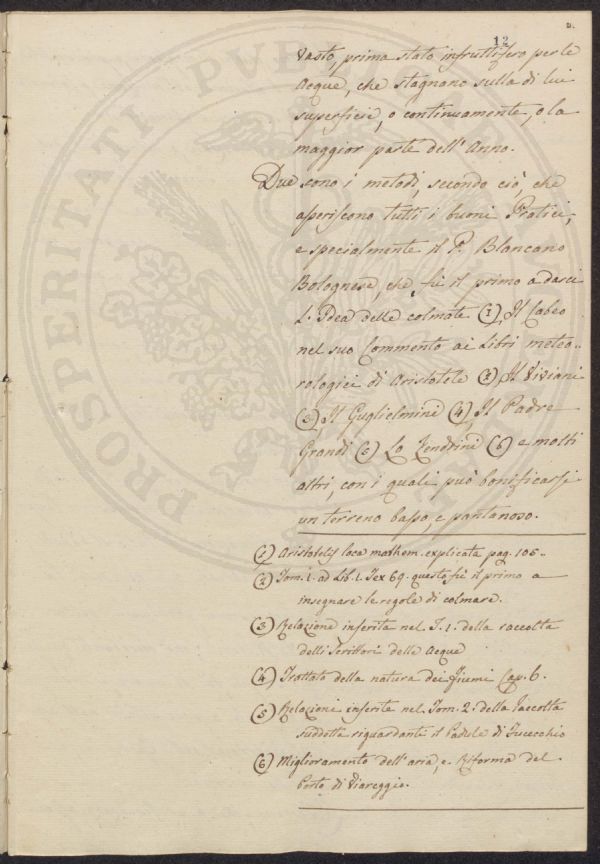 12
vasto, prima stato infruttifero per le
Acque, che stagnano sulla di lui
superficie, o continuamente, o la
maggior parte dell'Anno.
Due sono i metodi, secondo ciò, che
asseriscono tutti i buoni Pratici,
e specialmente il P. Blancano
Bolognese, che fù il primo a darci
L'Idea delle colmate (1), Il Cabeo
nel suo Commento ai Libri meteo-
rologici di Aristotele (2) Il Viviani
(3) Il Guglielmini (4), Il Padre
Grandi (5) Lo Zendrini (6) e molti
altri, con i quali può bonificarsi
un terreno basso, e pantanoso.
(1) Aristotelis loca mathem. explicata pag. 105..
(2) Tom. 1. ad Lib. 1. Tex 69. questo fù il primo a
insegnare le regole di colmare.
(3) Relazione inserita nel T. 1. della raccolta
delli Scrittori delle Acque
(4) Trattato della natura dei Fiumi Cap. 6.
(5) Relazioni inserite nel Tom. 2. della Raccolta
suddetta riguardanti il Padule di Fucecchio
(6) Miglioramento dell'aria, e Riforma del
Porto di Viareggio.
PROSPERITATI PVBL